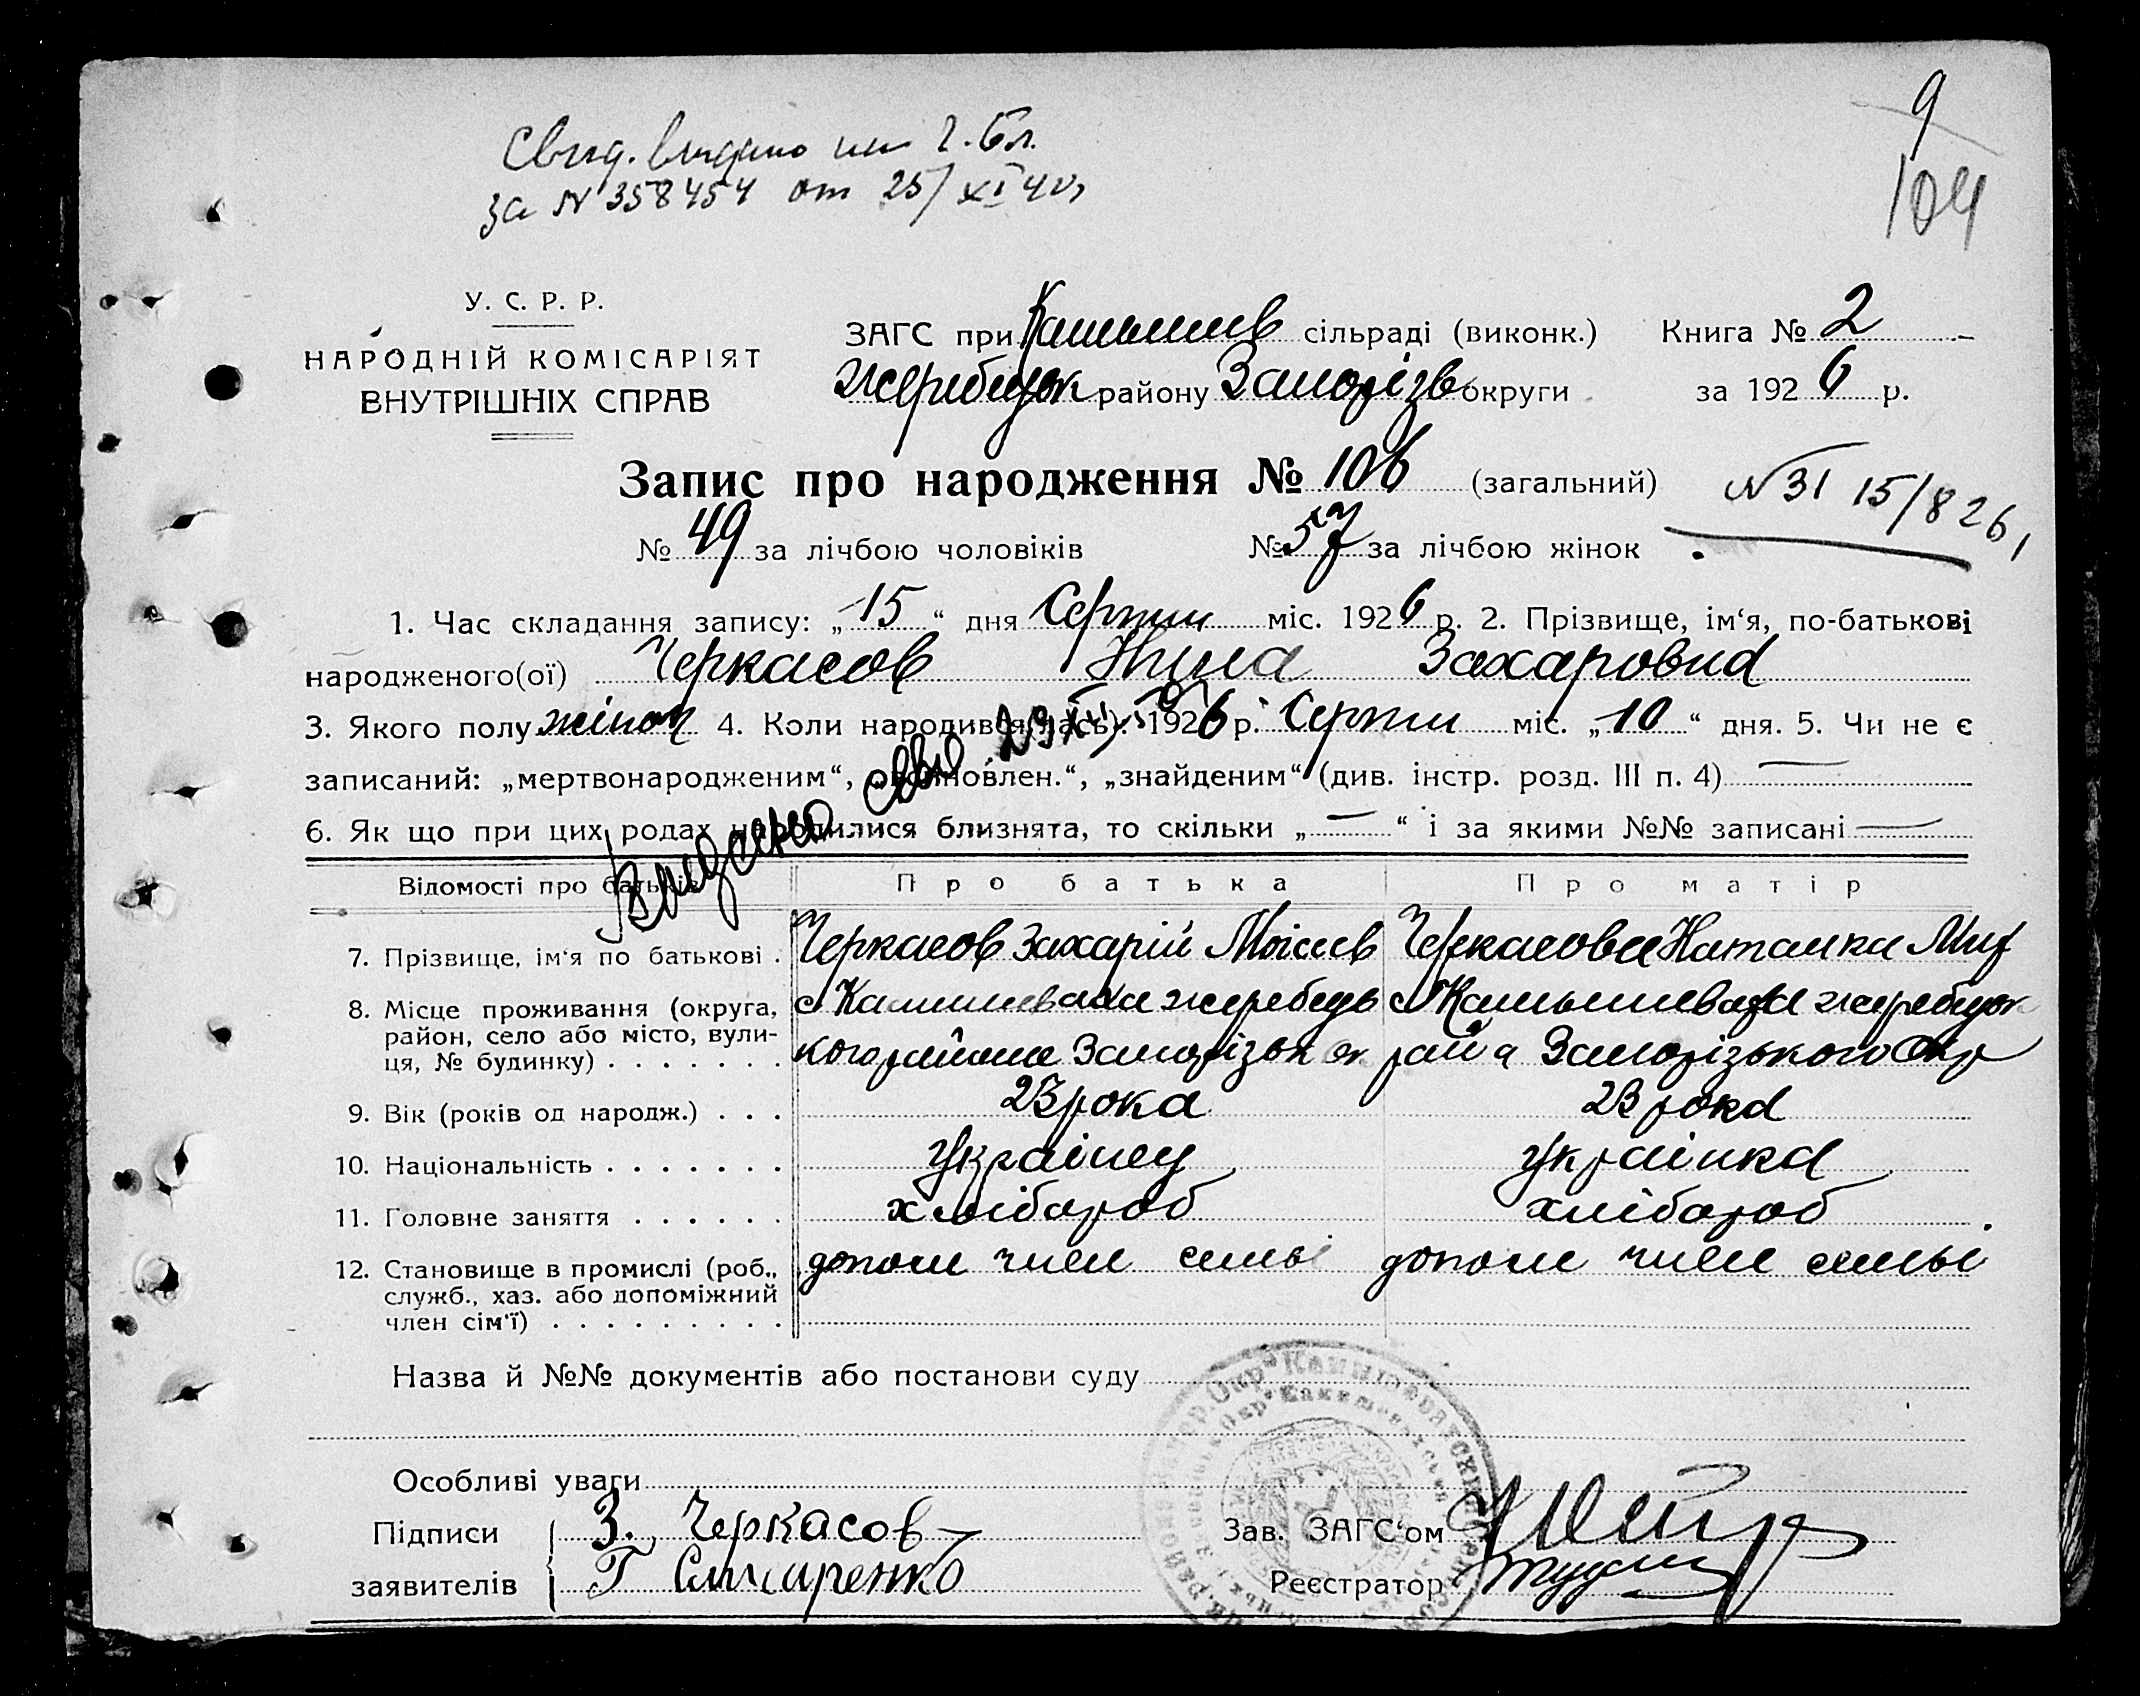 9
104
Свид. видано на 2. бл.
за N 358454 от 25/XI 40
У. С. Р. Р.
НАРОДНІЙ КОМІСАРІЯТ
ВНУТРІШНІХ СПРАВ
ЗАГС при Камышев сільраді (виконк.) Книга № 2
жеребецьк району Запорізь округи за 1926 р.
Запис про народження № 106 (загальний)
N 31 15/8 26
№ 49 за лічбою чоловіків № 57 за лічбою жінок
1. Час складання запису: „15“ дня Серпни міс. 1926 р. 2. Прізвище, ім‘я, по-батькові
народженого(ої) Черкасов Нина Захаровна
3. Якого полу жіноч 4. Коли народився(лась): 1926 р. Серпни міс. „10“ дня. 5. Чи не є
записаний: „мертвонародженим“, „новлен.“, „знайденим“ (див. інстр. розд. III п. 4) —
6. Як що при цих родах народилися близнята, то скільки „—“ і за якими №№ записані —
Видано
Відомості про батьків Про батька Про матір
7. Прізвище, ім‘я по батькові . Черкасов Захарій Моісеев Черкасова Наталка Мит
8. Місце проживання (округа, с Камишеваха жеребець с Камышеваха жеребецьк
район, село або місто, вули- кого района Запорізьк ок рай а Запорізького Окр
ця, № будинку) . . . . . . .
9. Вік (років од народж.) . . . 23 рока 23 рока
10. Національність . . . . . . . Українец українка
11. Головне заняття . . . . . . хлібороб хлібороб
12. Становище в промислі (роб., допом член семьі допом член семьі
служб., хаз. або допоміжний
член сім‘ї) . . . . . . . . .
Назва й №№ документів або постанови суду
Особливі уваги
Підписи З. Черкасов Зав. ЗАГС‘ом
заявителів Г Слисаренко Реєстратор